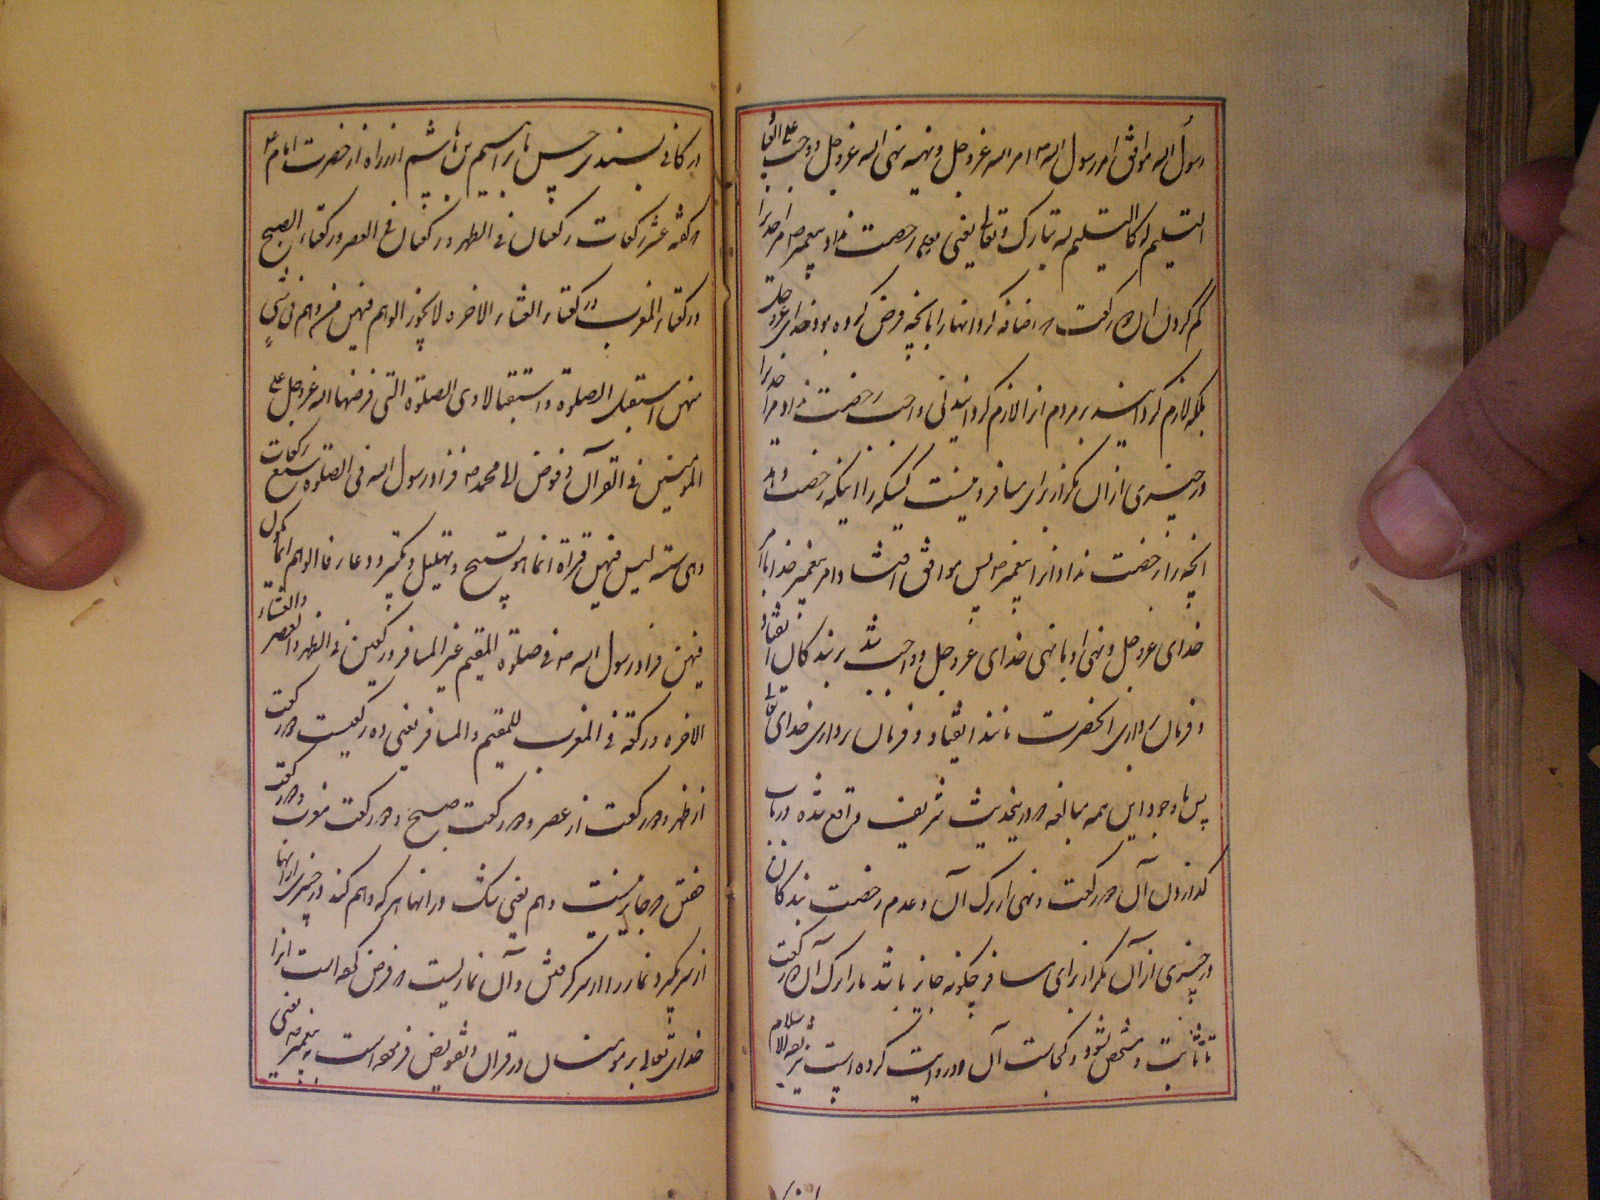 رسول الله موافق امر رسول الله ص امر الله عز و جل و نهیه نهی الله عز و جل و وجب علی العباد
التسلیم له کالتسلیم لله تبارک و تعالی یعنی پس رخصت نداد پیغمبر ص مر احدیرا
کم کردن آن دو رکعت که اضافه کرد انها را بانچه فرض کرده بود خدای عز و جل
بلکه لازم کردانید بر مردم انرا لازم کردانیدنی واجب رخصت نداد مر احدیرا
در چیزی از ان مکر از برای مسافر و نیست کسیکه را اینکه رخصت دهد
انچه را رخصت نداد انرا پیغمبر ص پس موافق افتاد امر پیغمبر خدا با امر
خدای عز و جل و نهی او با نهی خدای عز و جل و واجب شد بر بندکان انقیاد
و فرمان برداری انحضرت مانند انقیاد و فرمان برداری خدای تعالی
پس با وجود این همه مبالغه که در اینحدیث شریف واقع شده در باب
کذاردن آن دو رکعت و نهی از ترک آن و عدم رخصت بندکان
در چیزی از آن مکر از برای مسافر چکونه جایز باشد ما را ترک آن دو رکعت
تا ثابت و مشخص شود و کجاست آن و روایت کرده است ثقة الاسلام
در کافی بسند
عشر رکعات رکعتان فی الظهر و رکعتان فی العصر و رکعتا الصبح
و رکعتا المغرب و رکعتا العشاء الاخره لا یجوز الوهم فیهن من وهم فی شیء
منهن استقبل الصلوة استقبالا و هی الصلوة التی فرضها الله عز و جل علی
المؤمنین فی القرآن و فوض الی محمد ص فزاد رسول الله فی الصلوة سبع رکعات
و هی سنة لیس فیهن قراءة انما هو تسبیح و تهلیل و تکبیر و دعاء فالوهم انما یکون
فیهن فزاد رسول الله ص فی صلوة المقیم غیر المسافر رکعتین فی الظهر و العصر و العشاء
الاخره و رکعة فی المغرب للمقیم و المسافر یعنی ده رکعت دو رکعت
از ظهر و دو رکعت از عصر و دو رکعت صبح و دو رکعت مغرب و دو رکعت
خفتن که جایز نیست وهم یعنی شک در انها هر که وهم کند در چیزی از انها
از سر کیرد نماز را از سر کرفتنی و آن نمازیست که فرض کرده است انرا
خدای تعالی بر مؤمنان در قران و تفویض فرموده است به پیغمبر ص یعنی